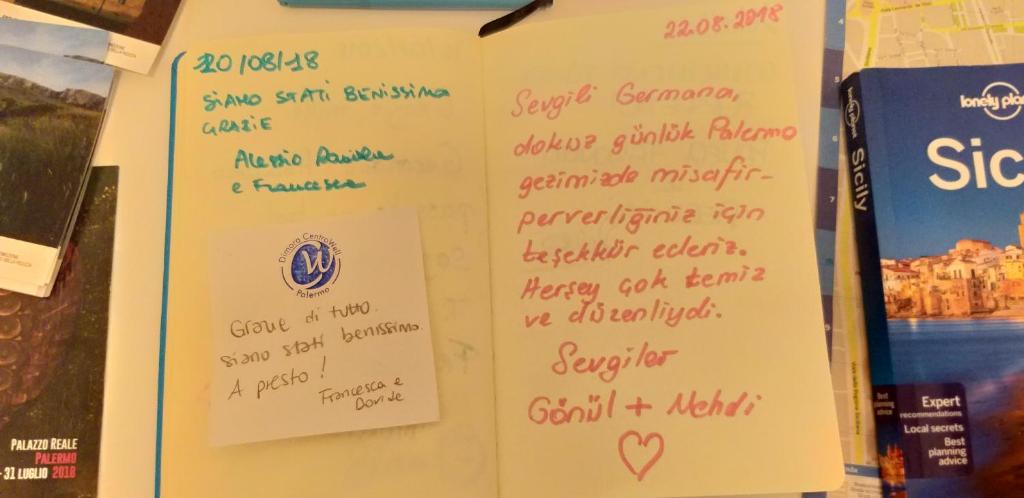 20/08/18
SIAMO STATI BENISSIMO
GRAZIE
Alessio
e Francesca
Dimora CentroWell
Palermo
Grazie di tutto.
siamo stati benissimo.
A presto!
Francesca e
Davide
22.08.2018
Sevgili Germana,
dokuz günlük Palermo
gezimizde misafir-
perverliğiniz için
teşekkür ederiz.
Herşey çok temiz
ve düzenliydi.
Sevgiler
Gönül + Mehdi
PALAZZO REALE
PALERMO
- 31 LUGLIO 2018
lonely planet
Sicily
lonely pla
Sic
Best
planning
advice
Expert
recommendations
Local secrets
Best
planning
advice